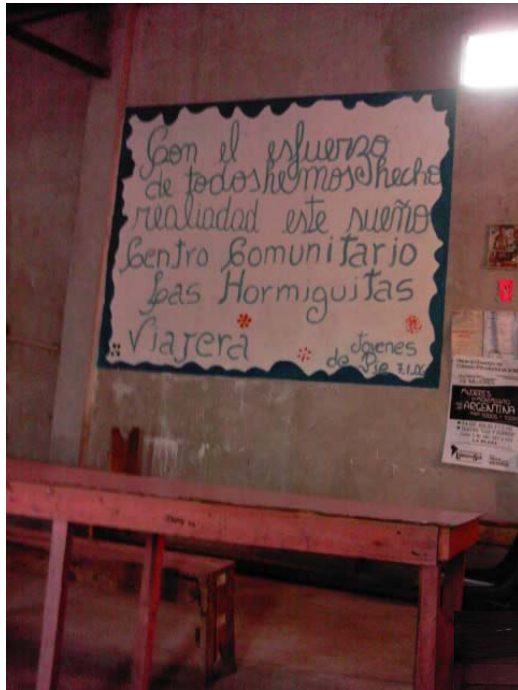 Con el esfuerzo
de todos hemos hecho
realiadad este sueño
Centro Comunitario
Las Hormiguitas
Viajera
Jovenes
de Pie 7.1.06
MUJERES
ARGENTINA